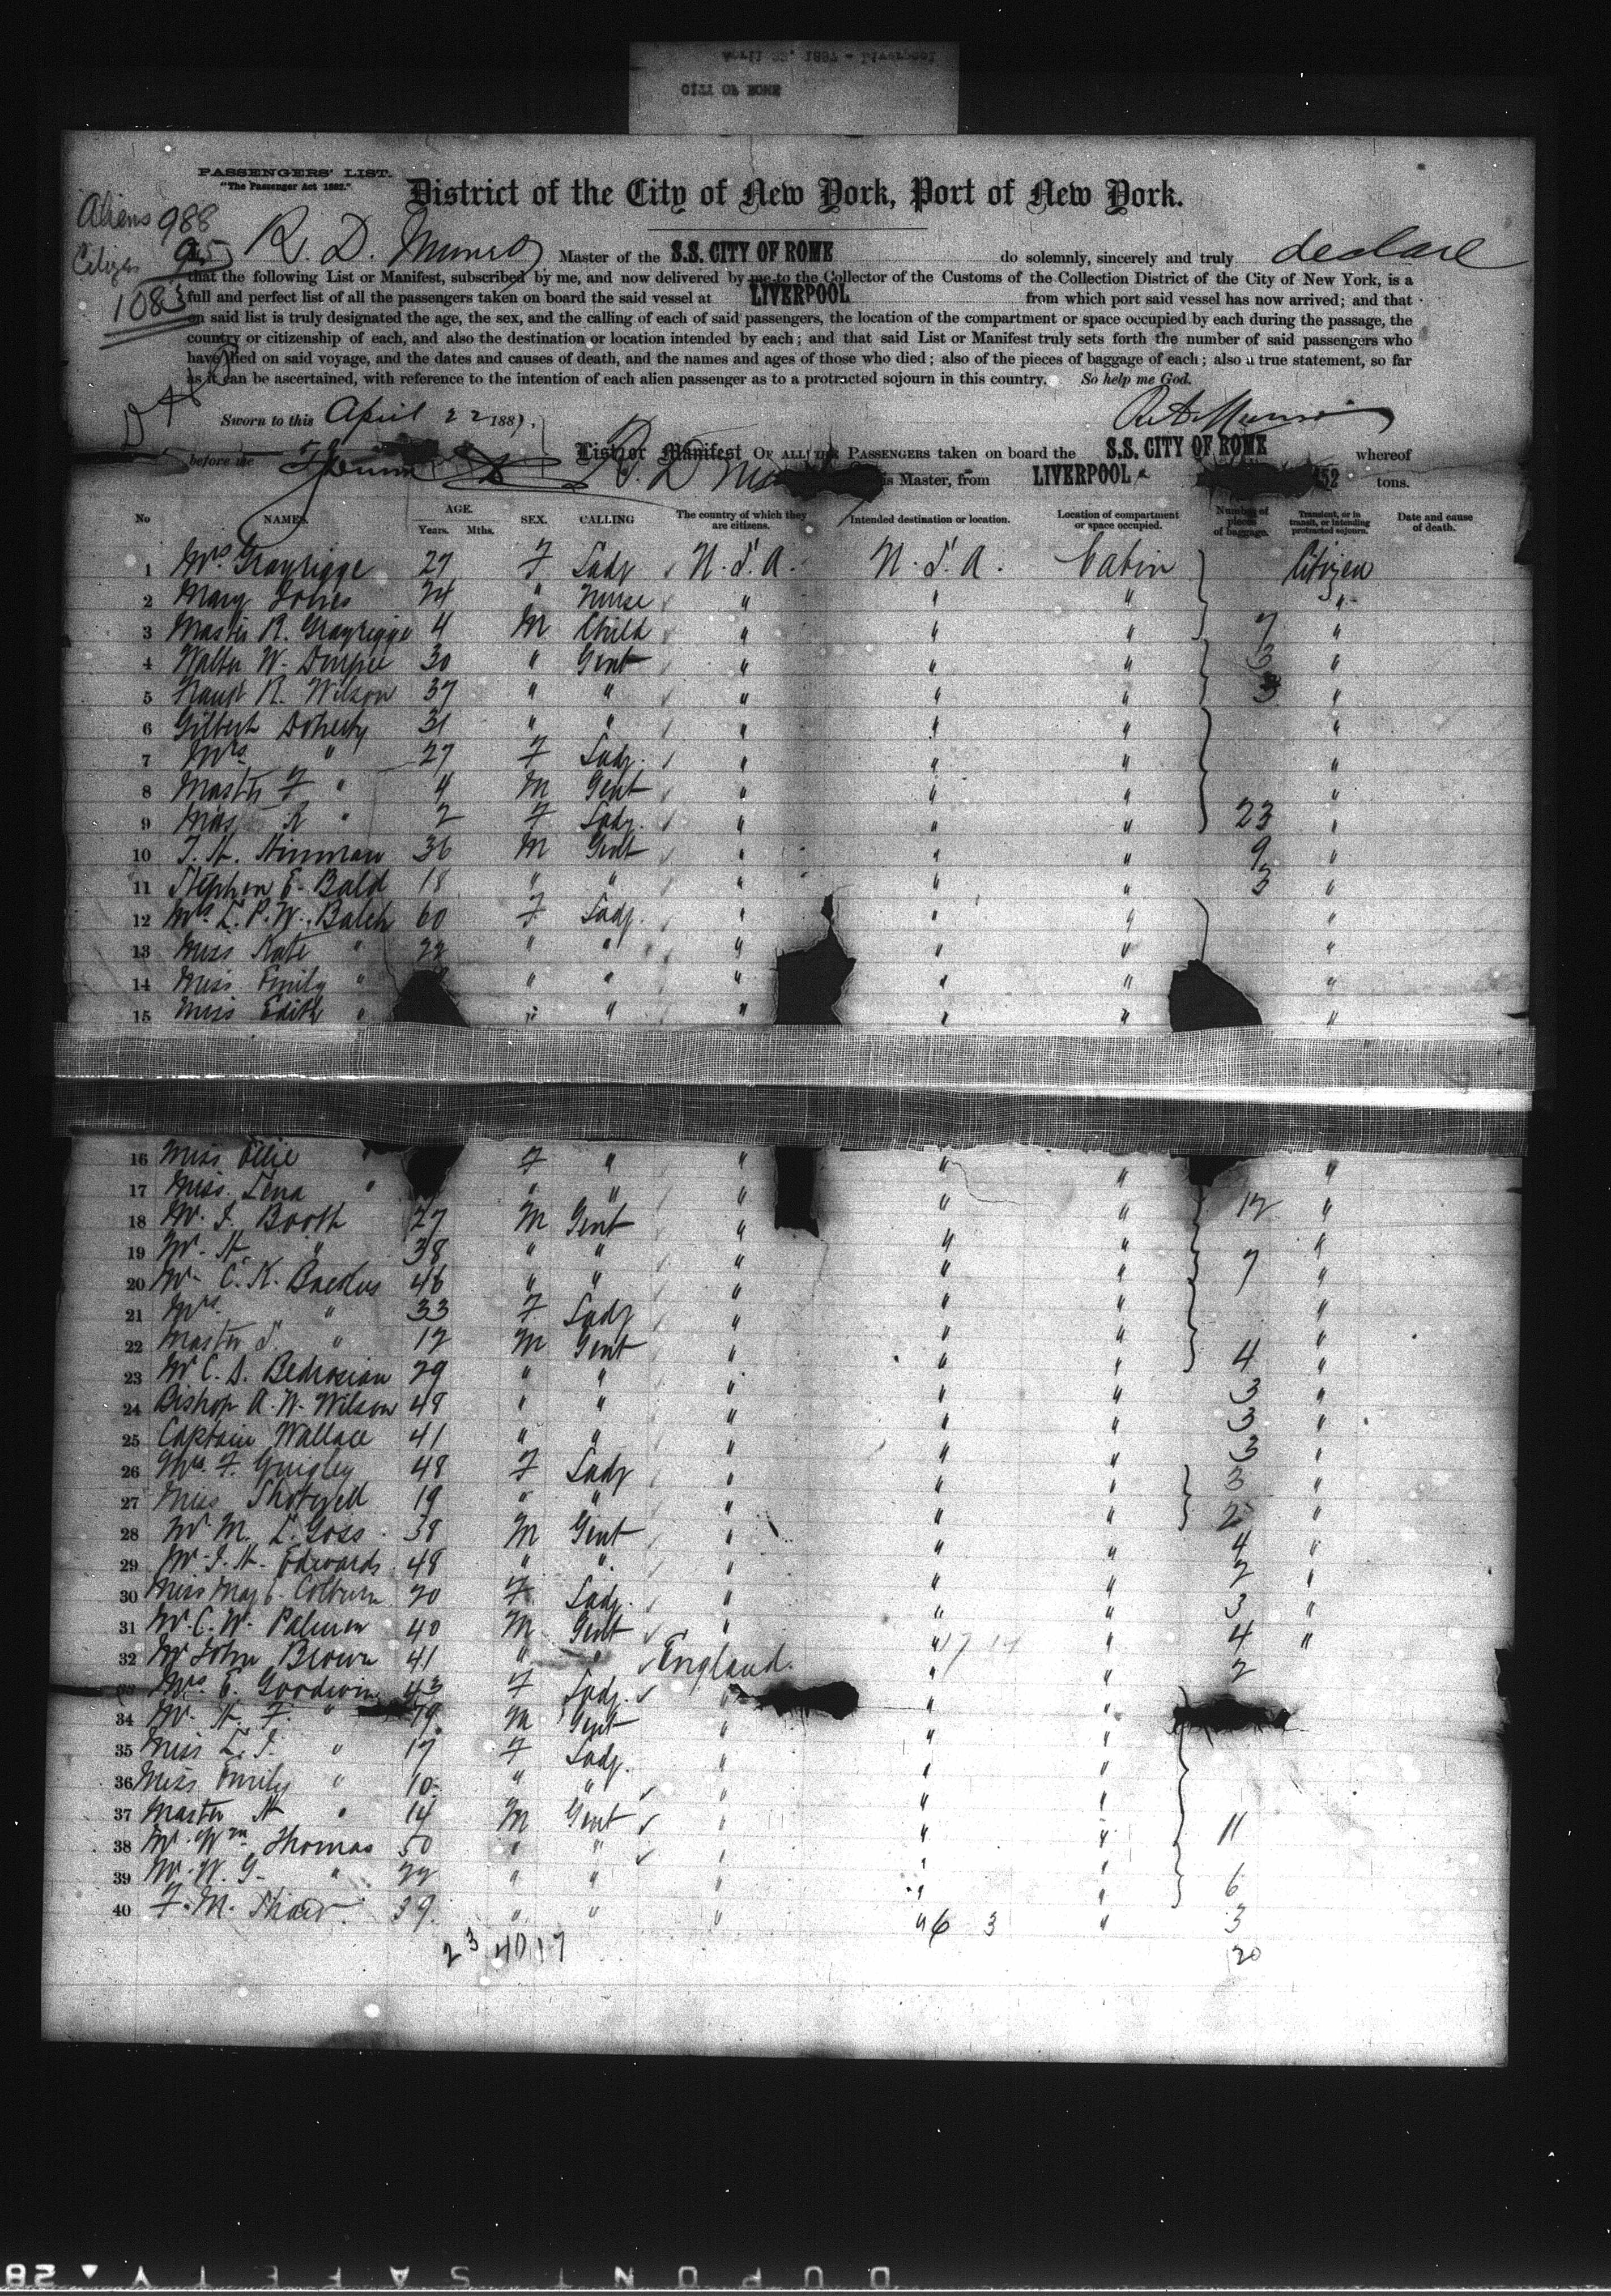 CITY OF ROME
PASSENGERS' LIST.
"The Passenger Act 1882."
District of the City of New York, Port of New York.
Aliens 988
Citizens 95
1083
R. D. Munro Master of the S.S. CITY OF ROME do solemnly, sincerely and truly declare
that the following List or Manifest, subscribed by me, and now delivered by me to the Collector of the Customs of the Collection District of the City of New York, is a
full and perfect list of all the passengers taken on board the said vessel at LIVERPOOL from which port said vessel has now arrived; and that
on said list is truly designated the age, the sex, and the calling of each of said passengers, the location of the compartment or space occupied by each during the passage, the
country or citizenship of each, and also the destination or location intended by each; and that said List or Manifest truly sets forth the number of said passengers who
have died on said voyage, and the dates and causes of death, and the names and ages of those who died; also of the pieces of baggage of each; also a true statement, so far
as it can be ascertained, with reference to the intention of each alien passenger as to a protracted sojourn in this country. So help me God.
Sworn to this April 22 1887. R. D. Munro
before me
List or Manifest OF ALL THE PASSENGERS taken on board the S.S. CITY OF ROME whereof
R. D. is Master, from LIVERPOOL 52 tons.
No NAMES. AGE. Years. Mths. SEX. CALLING The country of which they are citizens. Intended destination or location. Location of compartment or space occupied. Number of pieces of baggage. Transient, or in transit, or intending protracted sojourn. Date and cause of death.
1 Mrs Grayrigge 27 F Lady U.S.A. U.S.A. Cabin Citizen
2 Mary Jones 24 " Nurse " " " "
3 Master R. Grayrigge 4 M Child " " " 7 "
4 Walter W. Durfee 30 " Gent " " " 3 "
5 R. Wilson 37 " " " " " 3 "
6 Gilbert Doherty 31 " " " " " "
7 Mrs " 27 F Lady " " " "
8 Master F " 4 M Gent " " " "
9 Miss R " 2 F Lady " " " 23 "
10 T. H. Hinman 36 M Gent " " " 9 "
11 Stephen E. Bald 18 " " " " " 3 "
12 Mrs L. P. W. Balch 60 F Lady " " " "
13 Miss Kate " 22 " " " " " "
14 Miss Emily " " " " " " "
15 Miss Edith " " " " " " "
16 Miss Ellie F " " " " "
17 Miss Lena " " " " " " 12 "
18 Mr. J. Booth 27 M Gent " " " "
19 Mr. H. " 38 " " " " " 7 "
20 Mr C. K. Backus 46 " " " " " "
21 Mrs " 33 F Lady " " " "
22 Master S. " 12 M Gent " " " 4 "
23 Mr C. D. Bedrosian 29 " " " " " 3 "
24 Bishop A. W. Wilson 49 " " " " " 3 "
25 Captain Wallace 41 " " " " " 3 "
26 Mrs. F. Quigley 48 F Lady " " " 3 "
27 Miss 19 " " " " " 2 "
28 Mr M. L. Goss 38 M Gent " " " 4 "
29 Mr J. H. Edwards 48 " " " " " 2 "
30 Miss May E. Colburn 20 F Lady " " " 3 "
31 Mr. C. W. Palmer 40 M Gent " " 17 14 " 4 "
32 Mr John Brown 41 " " England " " 2
33 Mrs E. Goodwin 43 F Lady " "
34 Mr. H. F. " 19 M Gent " " "
35 Miss L. J. " 17 F Lady " " "
36 Miss Emily " 10 " " " " "
37 Master H " 14 M Gent " " " 11
38 Mr. Wm Thomas 50 " " " " "
39 Mr. W. G. " 22 " " " " " 6
40 F. M. Shaw 39 " " " " 6 3 " 3
23 40 17 20
DUPONT SAFETY 28